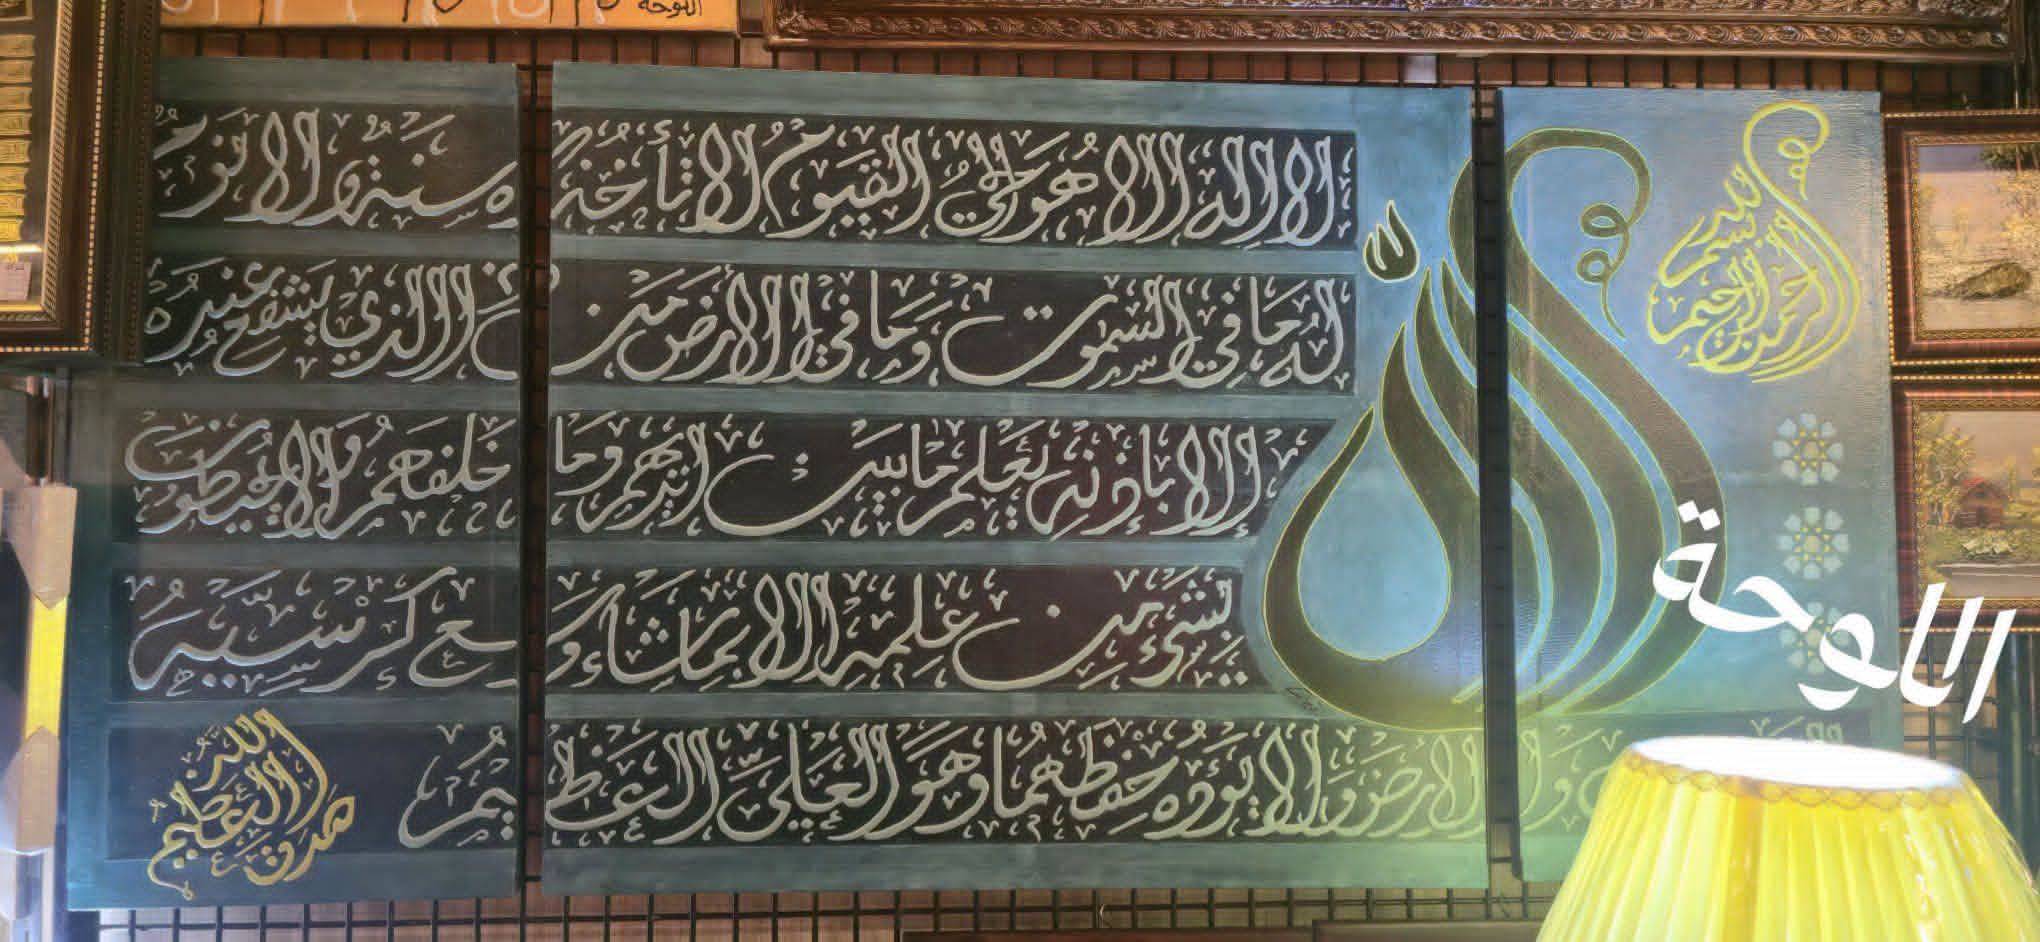 اللوحة
بسم الله الرحمن الرحيم
الله
لا إله إلا هو الحي القيوم لا تأخذه سنة ولا نوم
له ما في السموت وما في الأرض من ذا الذي يشفع عنده
إلا بإذنه يعلم ما بين أيديهم وما خلفهم ولا يحيطون
بشيء من علمه إلا بما شاء وسع كرسيه
والأرض ولا يؤده حفظهما وهو العلي العظيم
صدق الله العظيم
اللوحة